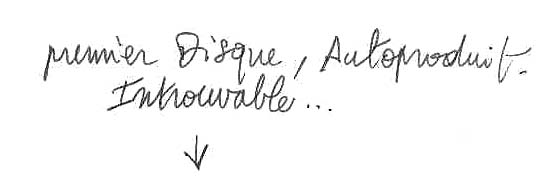 premier Disque, Autoproduit.
Introuvable...